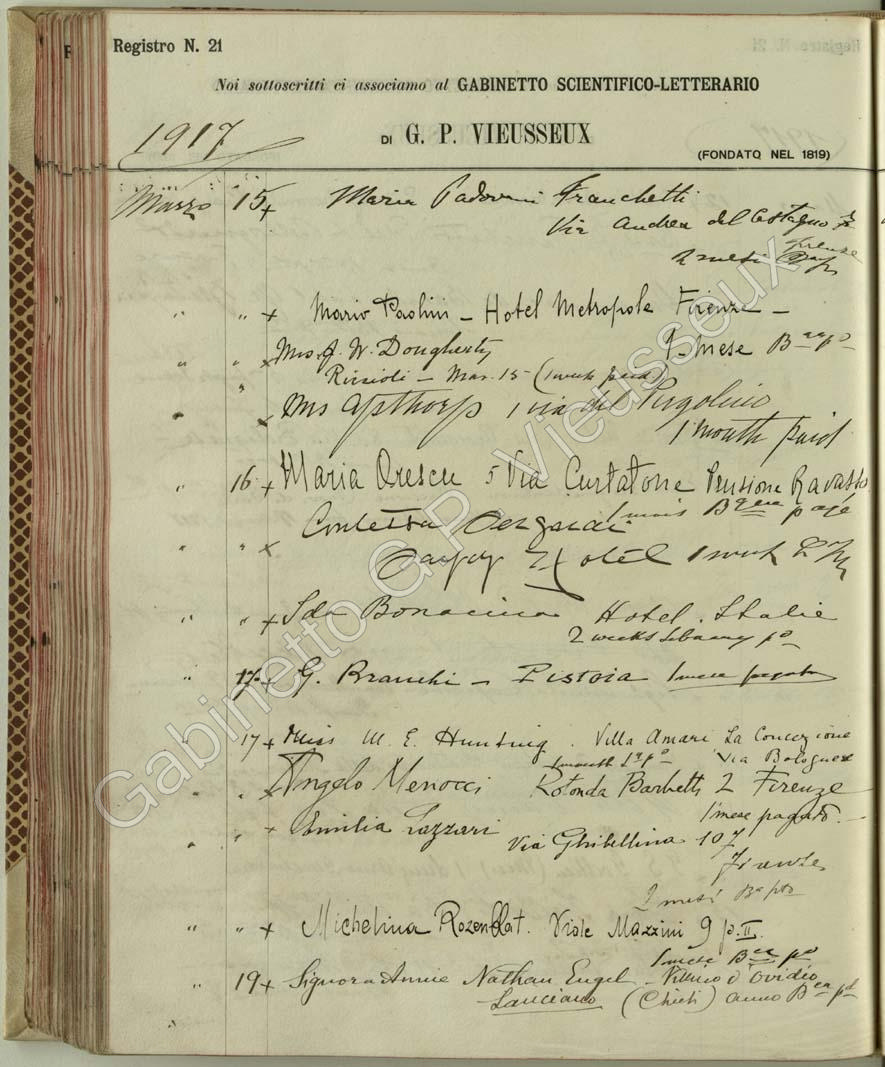 Registro N. 21
Noi sottoscritti ci associamo al GABINETTO SCIENTIFICO-LETTERARIO
1917
DI G. P. VIEUSSEUX
(FONDATO NEL 1819)
Marzo 15 x Maria Padovani Franchetti
Via Andrea del Castagno
Firenze
2 mesi
" " x Mario Paolini - Hotel Metropole Firenze -
1 mese
" x Mrs. J. W. Dougherty
Riccioli - Mar. 15 (1 week paid)
" " x Mrs Apthorp 1 via del Pergolino
1 month paid
" 16 x Maria Orescu 5 Via Curtatone Pensione Ravasso
1 mois payé
" " x Contessa
Savoy Hotel 1 week
" " x Ida Bonacina Hotel Italie
2 weeks Library po
" 17 x G. Branchi - Pistoia 1 mese pagato
" 17 x Miss M. E. Hunting. Villa Amari La Concezione
1 month Via Bolognese
" " x Angelo Menocci Rotonda Barbetti 2 Firenze
1 mese pagato.
" " x Emilia Lazzari
Via Ghibellina 107
Firenze
2 mesi
" " x Michelina Rozenblat. Viale Mazzini 9 p. II.
1 mese
" 19 x Signora Annie Nathan Engel - Villino d'Ovidio
Lanciano (Chieti) anno
Gabinetto G.P. Vieusseux